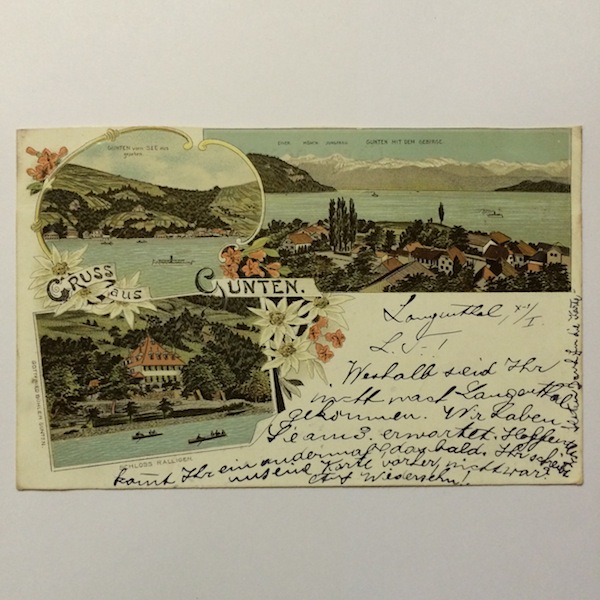 GUNTEN vom SEE aus
gesehen.
EIGER MÖNCH JUNGFRAU GUNTEN MIT DEM GEBIRGE.
GRUSS
aus
GUNTEN.
GOTTFRIED BÜHLER GUNTEN.
SCHLOSS RALLIGEN.
Langenthal,
L. J.!
Weshalb seid Ihr
nicht nach Langenthal
gekommen. Wir haben
erwartet. Hoffentlich
komt Ihr ein andermal, bald. Ihr
unsere Karte vorher, nicht war?
Auf Wiedersehn!